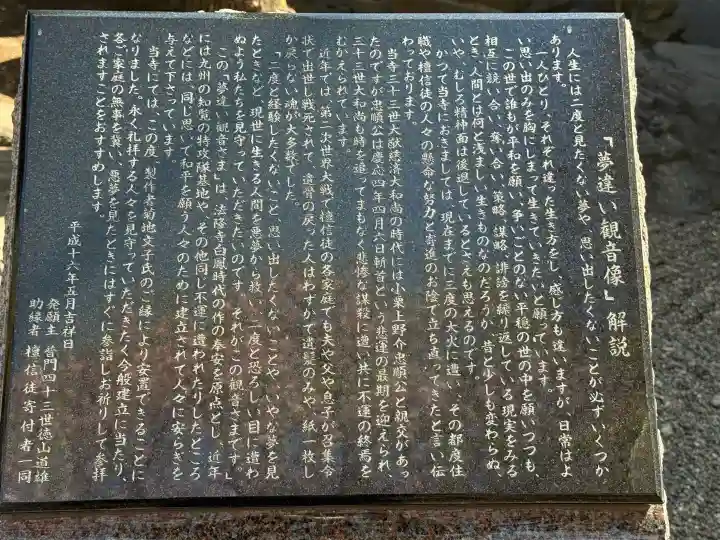 『夢違い観音像』解説
人生には二度と見たくない夢や、思い出したくないことが必ずいくつか
あります。
一人ひとり、それぞれ違った生き方をし、感じ方も違いますが、日常はよ
い思い出のみを胸にしまって生きていきたいと願っています。
この世で誰もが平和を願い、争いごとのない平穏の世の中を願いつつも、
相互に競い合い、奪い合い、策略、謀略、誹謗を繰り返している現実をみる
とき、人間とは何と浅ましい生きものなのだろうか、昔と少しも変わらぬ、
いや、むしろ精神面は後退しているとさえも思えるのです。
かつて当寺におきましては、現在までに三度の大火に遭い、その都度住
職や檀信徒の人々の懸命な努力と寄進のお陰で立ち直ってきたと言い伝
わっております。
当寺三十三世大猷慈済大和尚の時代には小栗上野介忠順公と親交があっ
たのですが忠順公は慶応四年四月六日斬首という非運の最期を迎えられ、
三十三世大和尚も時を追ってまもなく悲惨な謀殺に遭い共に不運の終焉を
むかえられています。
近年では、第二次世界大戦で檀信徒の各家庭でも夫や父や息子が召集令
状で出世し戦死されて、遺骨の戻った人はわずかで遺髪のみや、紙一枚し
か戻らない魂が大多数でした。
「二度と経験したくないこと、思い出したくないことや、いやな夢を見
たときなど、現世に生きる人間を悪夢から救い、二度と恐ろしい目に遭わ
ぬよう私たちを見守っていただきたいのです。それがこの観音さまです。」
この「夢違い観音さま」は、法隆寺白鳳時代の作の奉安を原点とし、近年
には九州の知覧の特攻隊基地や、その他同じ不運に遭われたりしたところ
などには、同じ思いで和平を願う人々のために建立されて人々に安らぎを
与えて下さっています。
当寺にては、この度、製作者菊地文子氏のご縁により安置できることに
なりました。永く礼拝する人々を見守っていただきたく今般建立に当たり、
各ご家庭の無事を冀い、悪夢を見たときにはすぐに参詣しお祈りして参拝
されますことをおすすめします。
平成十六年五月吉祥日
発願主 普門四十三世徳山道雄
助縁者 檀信徒寄付者一同